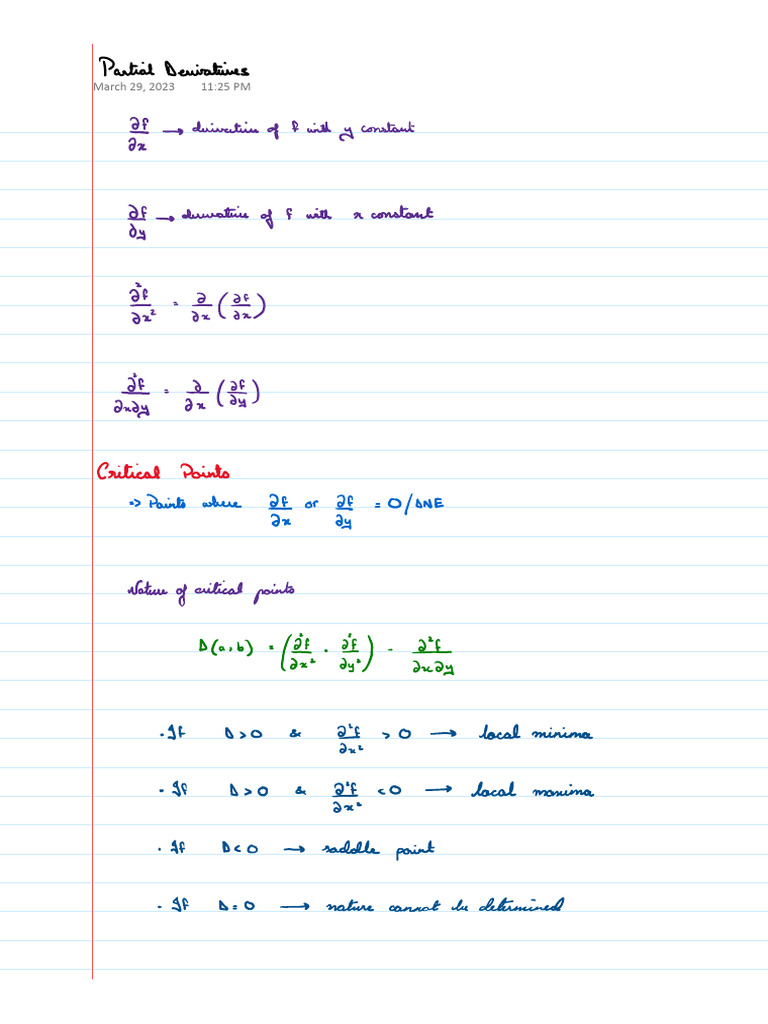 Partial Derivatives
March 29, 2023 11:25 PM
∂f/∂x → derivative of f with y constant
∂f/∂y → derivative of f with x constant
∂²f/∂x² = ∂/∂x (∂f/∂x)
∂²f/∂x∂y = ∂/∂x (∂f/∂y)
Critical Points
=> Points where ∂f/∂x or ∂f/∂y = 0/DNE
Nature of critical points
D(a,b) = (∂²f/∂x² · ∂²f/∂y²) - ∂²f/∂x∂y
· If D>0 & ∂²f/∂x² > 0 → local minima
· If D>0 & ∂²f/∂x² < 0 → local maxima
· If D<0 → saddle point
· If D=0 → nature cannot be determined